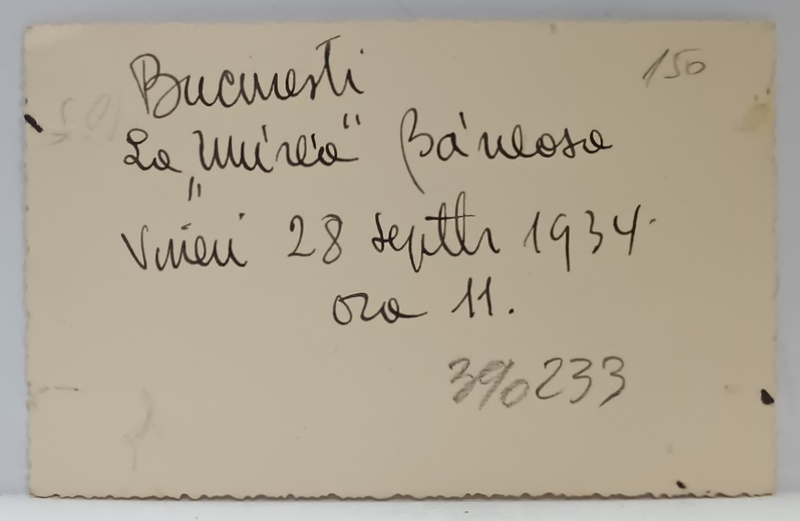 București
150
La „Mircea" Băneasa
Vineri 28 septbr 1934.
ora 11.
390233